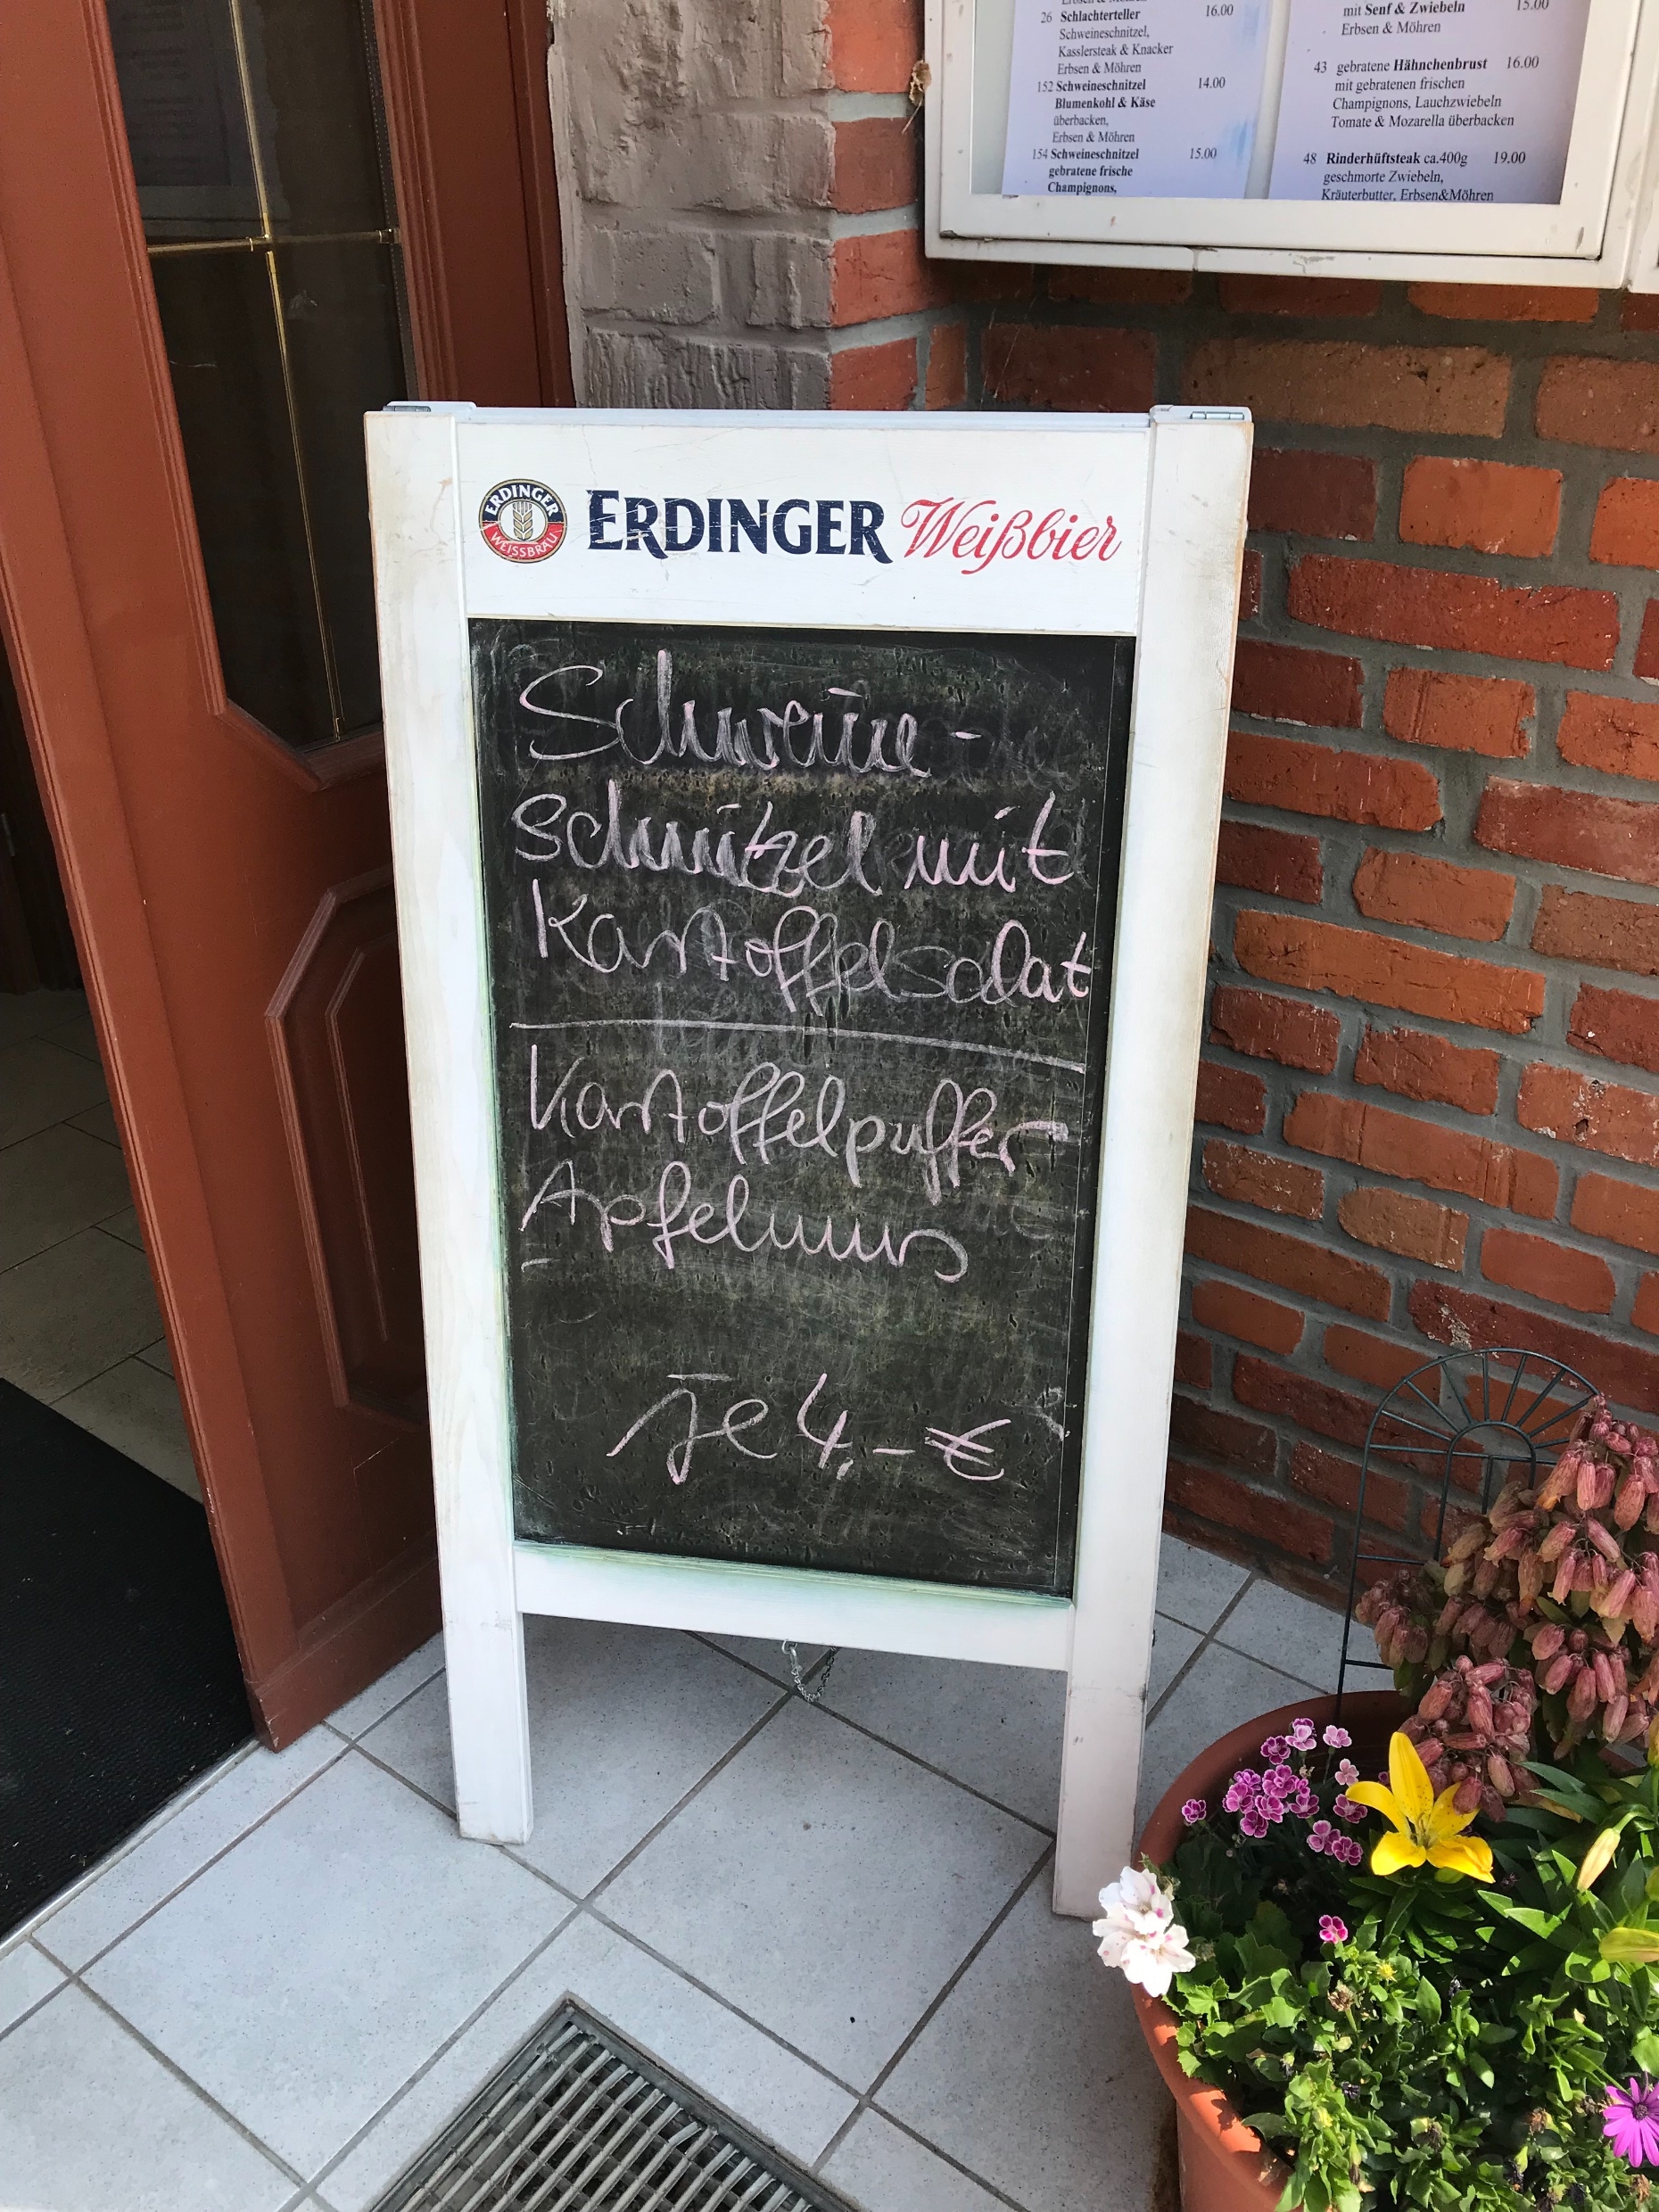 26 Schlachterteller 16.00
Schweineschnitzel,
Kasslersteak & Knacker
Erbsen & Möhren
152 Schweineschnitzel 14.00
Blumenkohl & Käse
überbacken,
Erbsen & Möhren
154 Schweineschnitzel 15.00
gebratene frische
Champignons,
mit Senf & Zwiebeln 15.00
Erbsen & Möhren
43 gebratene Hähnchenbrust 16.00
mit gebratenen frischen
Champignons, Lauchzwiebeln
Tomate & Mozarella überbacken
48 Rinderhüftsteak ca.400g 19.00
geschmorte Zwiebeln,
Kräuterbutter, Erbsen&Möhren
ERDINGER
WEISSBRÄU
ERDINGER Weißbier
Schweine-
schnitzel mit
Kartoffelsalat
Kartoffelpuffer
Apfelmus
je 4,- €